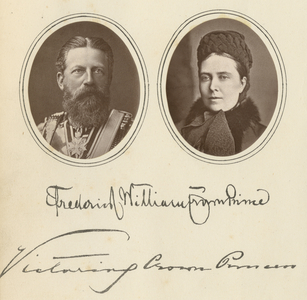 Frederick William Crown Prince
Victoria Crown Princess